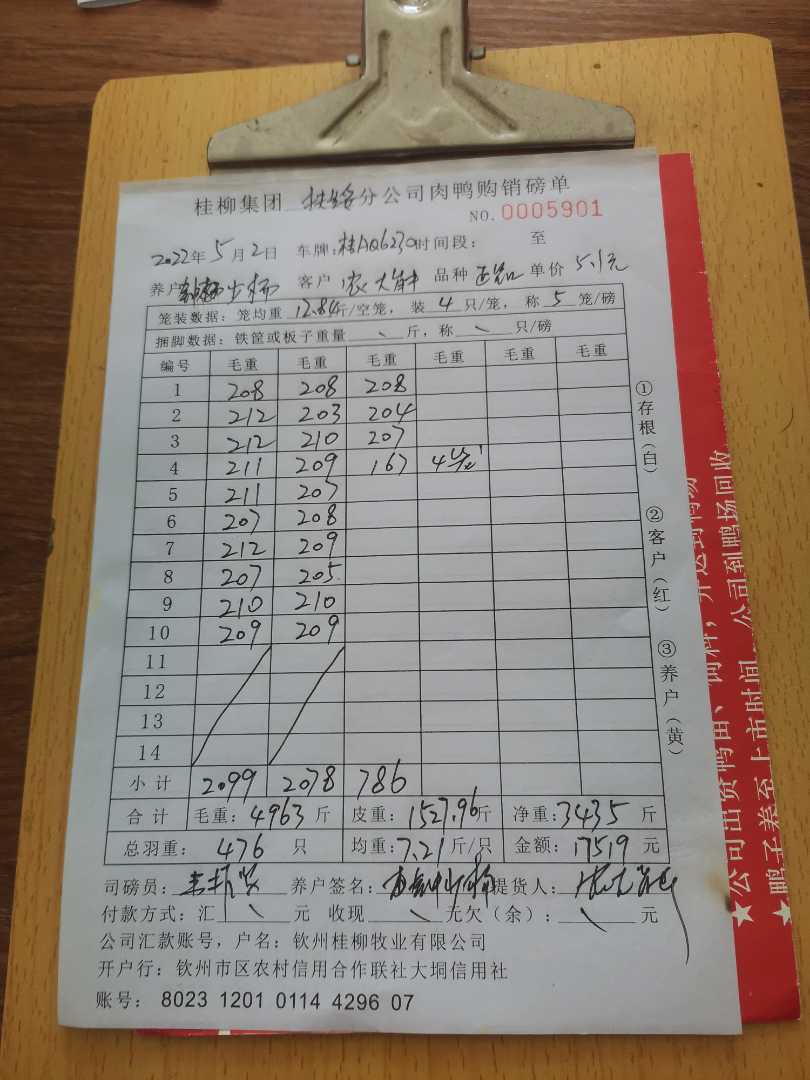 桂柳集团 扶绥 分公司肉鸭购销磅单
NO. 0005901
2022年 5 月 2 日 车牌: 桂AQ6230 时间段: 至
养户 客户 农 品种 单价 5.1元
笼装数据: 笼均重 12.84斤/空笼, 装 4 只/笼, 称 5 笼/磅
捆脚数据: 铁筐或板子重量 \ 斤, 称 \ 只/磅
编号 毛重 毛重 毛重 毛重 毛重 毛重
1 208 208 208
2 212 203 204
3 212 210 207
4 211 209 167 4笼
5 211 207
6 207 208
7 212 209
8 207 205
9 210 210
10 209 209
11
12
13
14
小计 2099 2078 786
合计 毛重: 4963 斤 皮重: 1527.96斤 净重: 3435 斤
总羽重: 476 只 均重: 7.21 斤/只 金额: 17519 元
司磅员: 养户签名: 提货人:
付款方式: 汇 \ 元 收现 \ 元欠(余): \ 元
公司汇款账号, 户名: 钦州桂柳牧业有限公司
开户行: 钦州市区农村信用合作联社大垌信用社
账号: 8023 1201 0114 4296 07
①存根(白)
②客户(红)
③养户(黄)
公司到鸭场回收
★公司出资鸭苗、饲料,
★鸭子养至上市时间